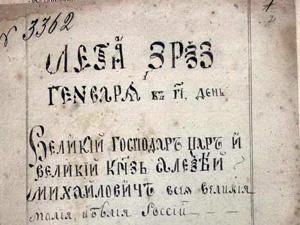 № 3362
ЛЕТА ЗРѮЗ
ГЕНВАРѦ ВЪ ГІ, ДЕНЬ
ВЕЛИКІЙ ГОСПОДАРЪ ЦАР Й
ВЕЛИКІЙ КНЗЬ АЛЕѮѢЙ
МИХАЙЛОВИЧЪ ВСІЯ ВЕЛИКІЯ
МАЛІЯ, И БѢЛІЯ РОССІЙ